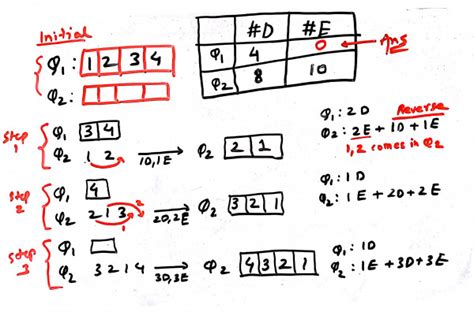 Initial
φ1: 1 2 3 4
φ2:
#D #E
φ1 4 0 ← Ans
φ2 8 10
Step 1
φ1 3 4
φ2 1 2 1D,1E φ2 2 1
φ1: 2D Reverse
φ2: 2E + 1D + 1E
1,2 comes in φ2
Step 2
φ1 4
φ2 2 1 3 2 1 2D,2E φ2 3 2 1
φ1: 1D
φ2: 1E + 2D + 2E
Step 3
φ1
φ2 3 2 1 4 3D,3E φ2 4 3 2 1
φ1: 1D
φ2: 1E + 3D + 3E